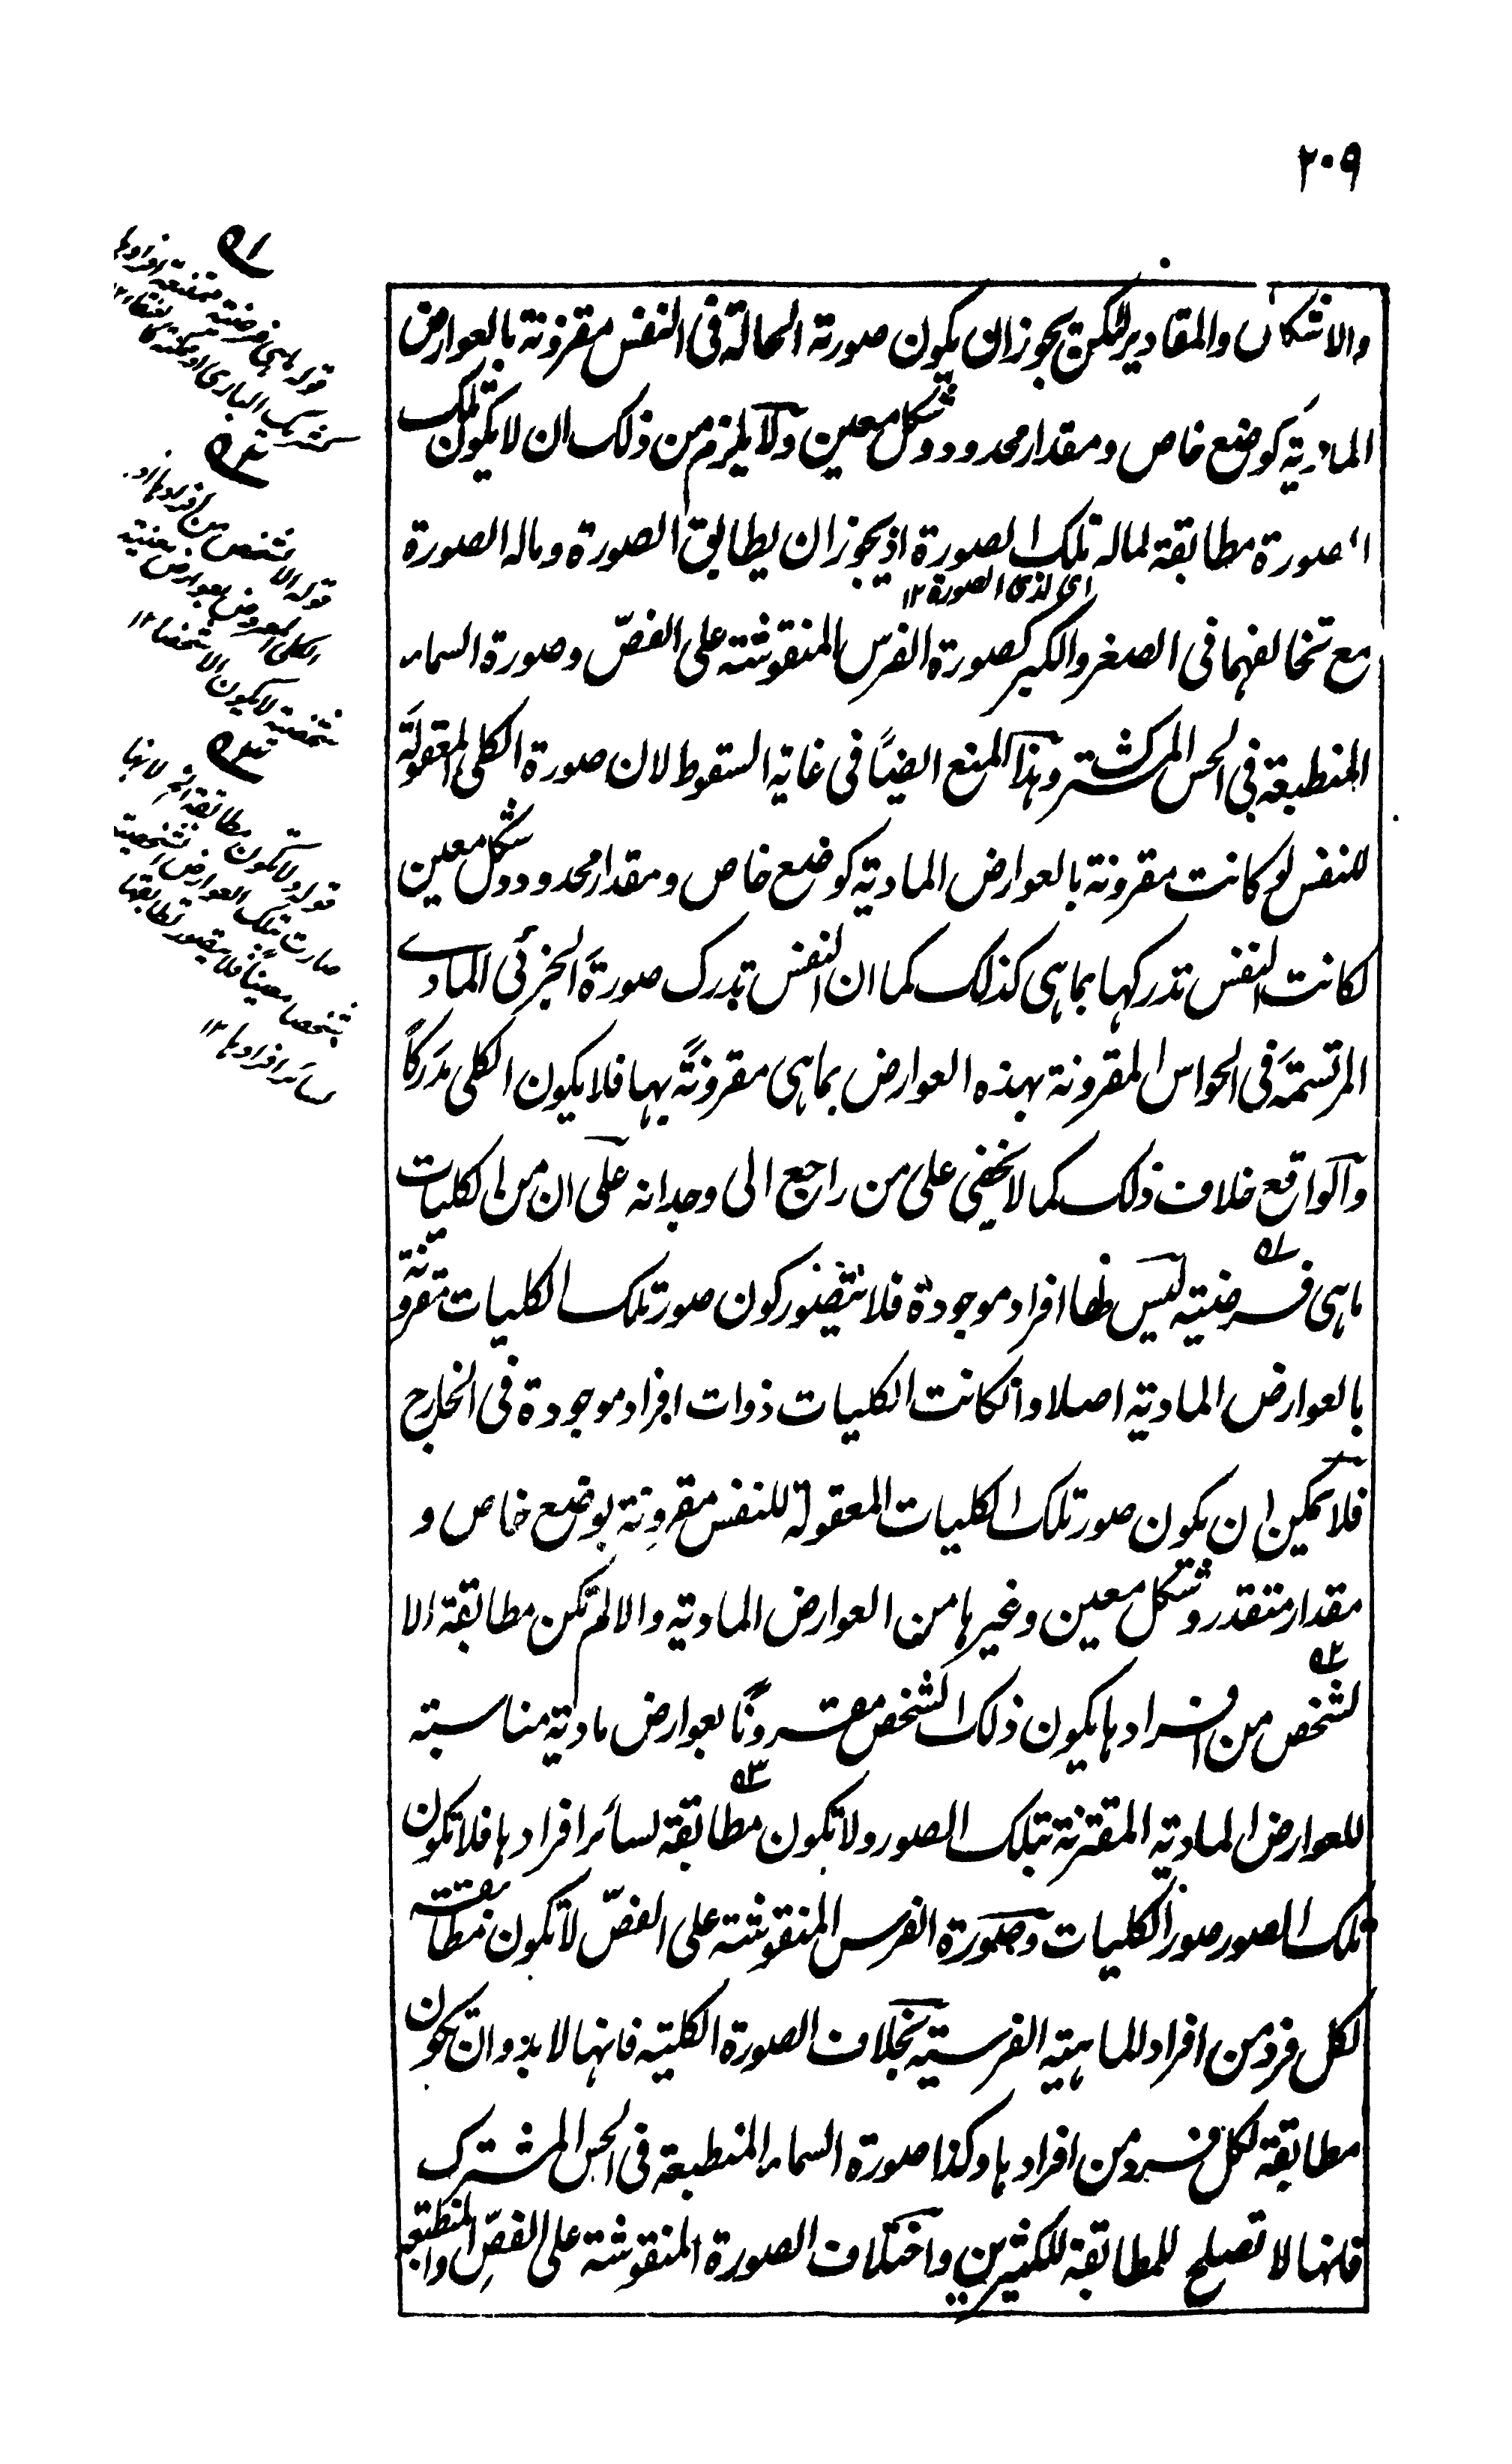 ٢٠٩
والاشكال والمقادير لكن يجوز ان يكون صورته الحالة فى النفس مقرونة بالعوارض
المادية كوضع خاص ومقدار محدود وشكل معين ولا يلزم من ذلك ان لا يكون تلك
الصورة مطابقة لماله تلك الصورة اذ يجوز ان يطابق الصورة وماله الصورة
اى لذى الصورة ١٢
مع تخالفهما فى الصغر والكبر كصورة الفرس المنقوشة على الفصّ وصورة السماء
المنطبعة فى الحس المشترك وهذا المنع ايضاً فى غاية السقوط لان صورة الكلى المعقولة
للنفس لو كانت مقرونة بالعوارض المادية كوضع خاص ومقدار محدود وشكل معين
لكانت النفس تدركها بما هى كذلك كما ان النفس تدرك صورة الجزئى المادے
المرتسمة فى الحواس المقرونة بهذه العوارض بما هى مقرونة بها فلا يكون الكلى مدركاً
والواقع خلاف ذلك كما لا يخفى على من راجع الى وجدانه على ان من الكليات
ما هى فرضية ليس لها افراد موجودة فلا يتصور كون صور تلك الكليات مقرونة
بالعوارض المادية اصلا وان كانت الكليات ذوات افراد موجودة فى الخارج
فلا يمكن ان يكون صور تلك الكليات المعقولة للنفس مقرونة بوضع خاص و
مقدار متقدر وشكل معين وغيرها من العوارض المادية والا لم تكن مطابقة الا
لشخص من افرادها يكون ذلك الشخص مقروناً بعوارض مادية مناسبة
للعوارض المادية المقترنة بتلك الصور ولا تكون مطابقة لسائر افرادها فلا تكون
تلك الصور صور الكليات وصورة الفرس المنقوشة على الفصّ لا تكون مطابقة
لكل فرد من افراد الماهية الفرسية بخلاف الصورة الكلية فانها لا بد وان تكون
مطابقة لكل فرد من افرادها وكذا صورة السماء المنطبعة فى الحس المشترك
فانها لا تصلح للمطابقة للكثيرين واختلاف الصورة المنقوشة على الفصّ والمنطبعة
قوله ما هى فرضية ممتنعة افرادها
كشريك البارى او ممكنة
قوله الا لشخص من افرادها
الكلى المعروض بعوارض معينة
شخصية لا يكون الا شخصا ١٢
قوله ولا تكون مطابقة الخ لانها
صارت بتلك العوارض الشخصية
شخصا معيناً فلا يتصور تطابقها
لسائر افرادها ١٢